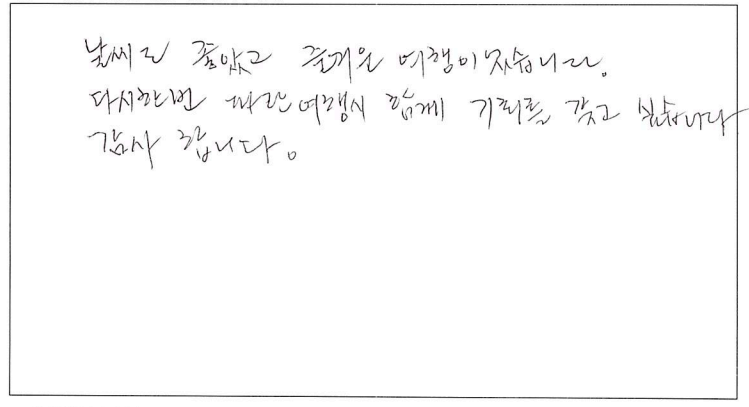 날씨도 좋았고 즐거운 여행이 었습니다.
다시한번 다른여행시 함께 기회를 갖고 싶습니다
감사 합니다.